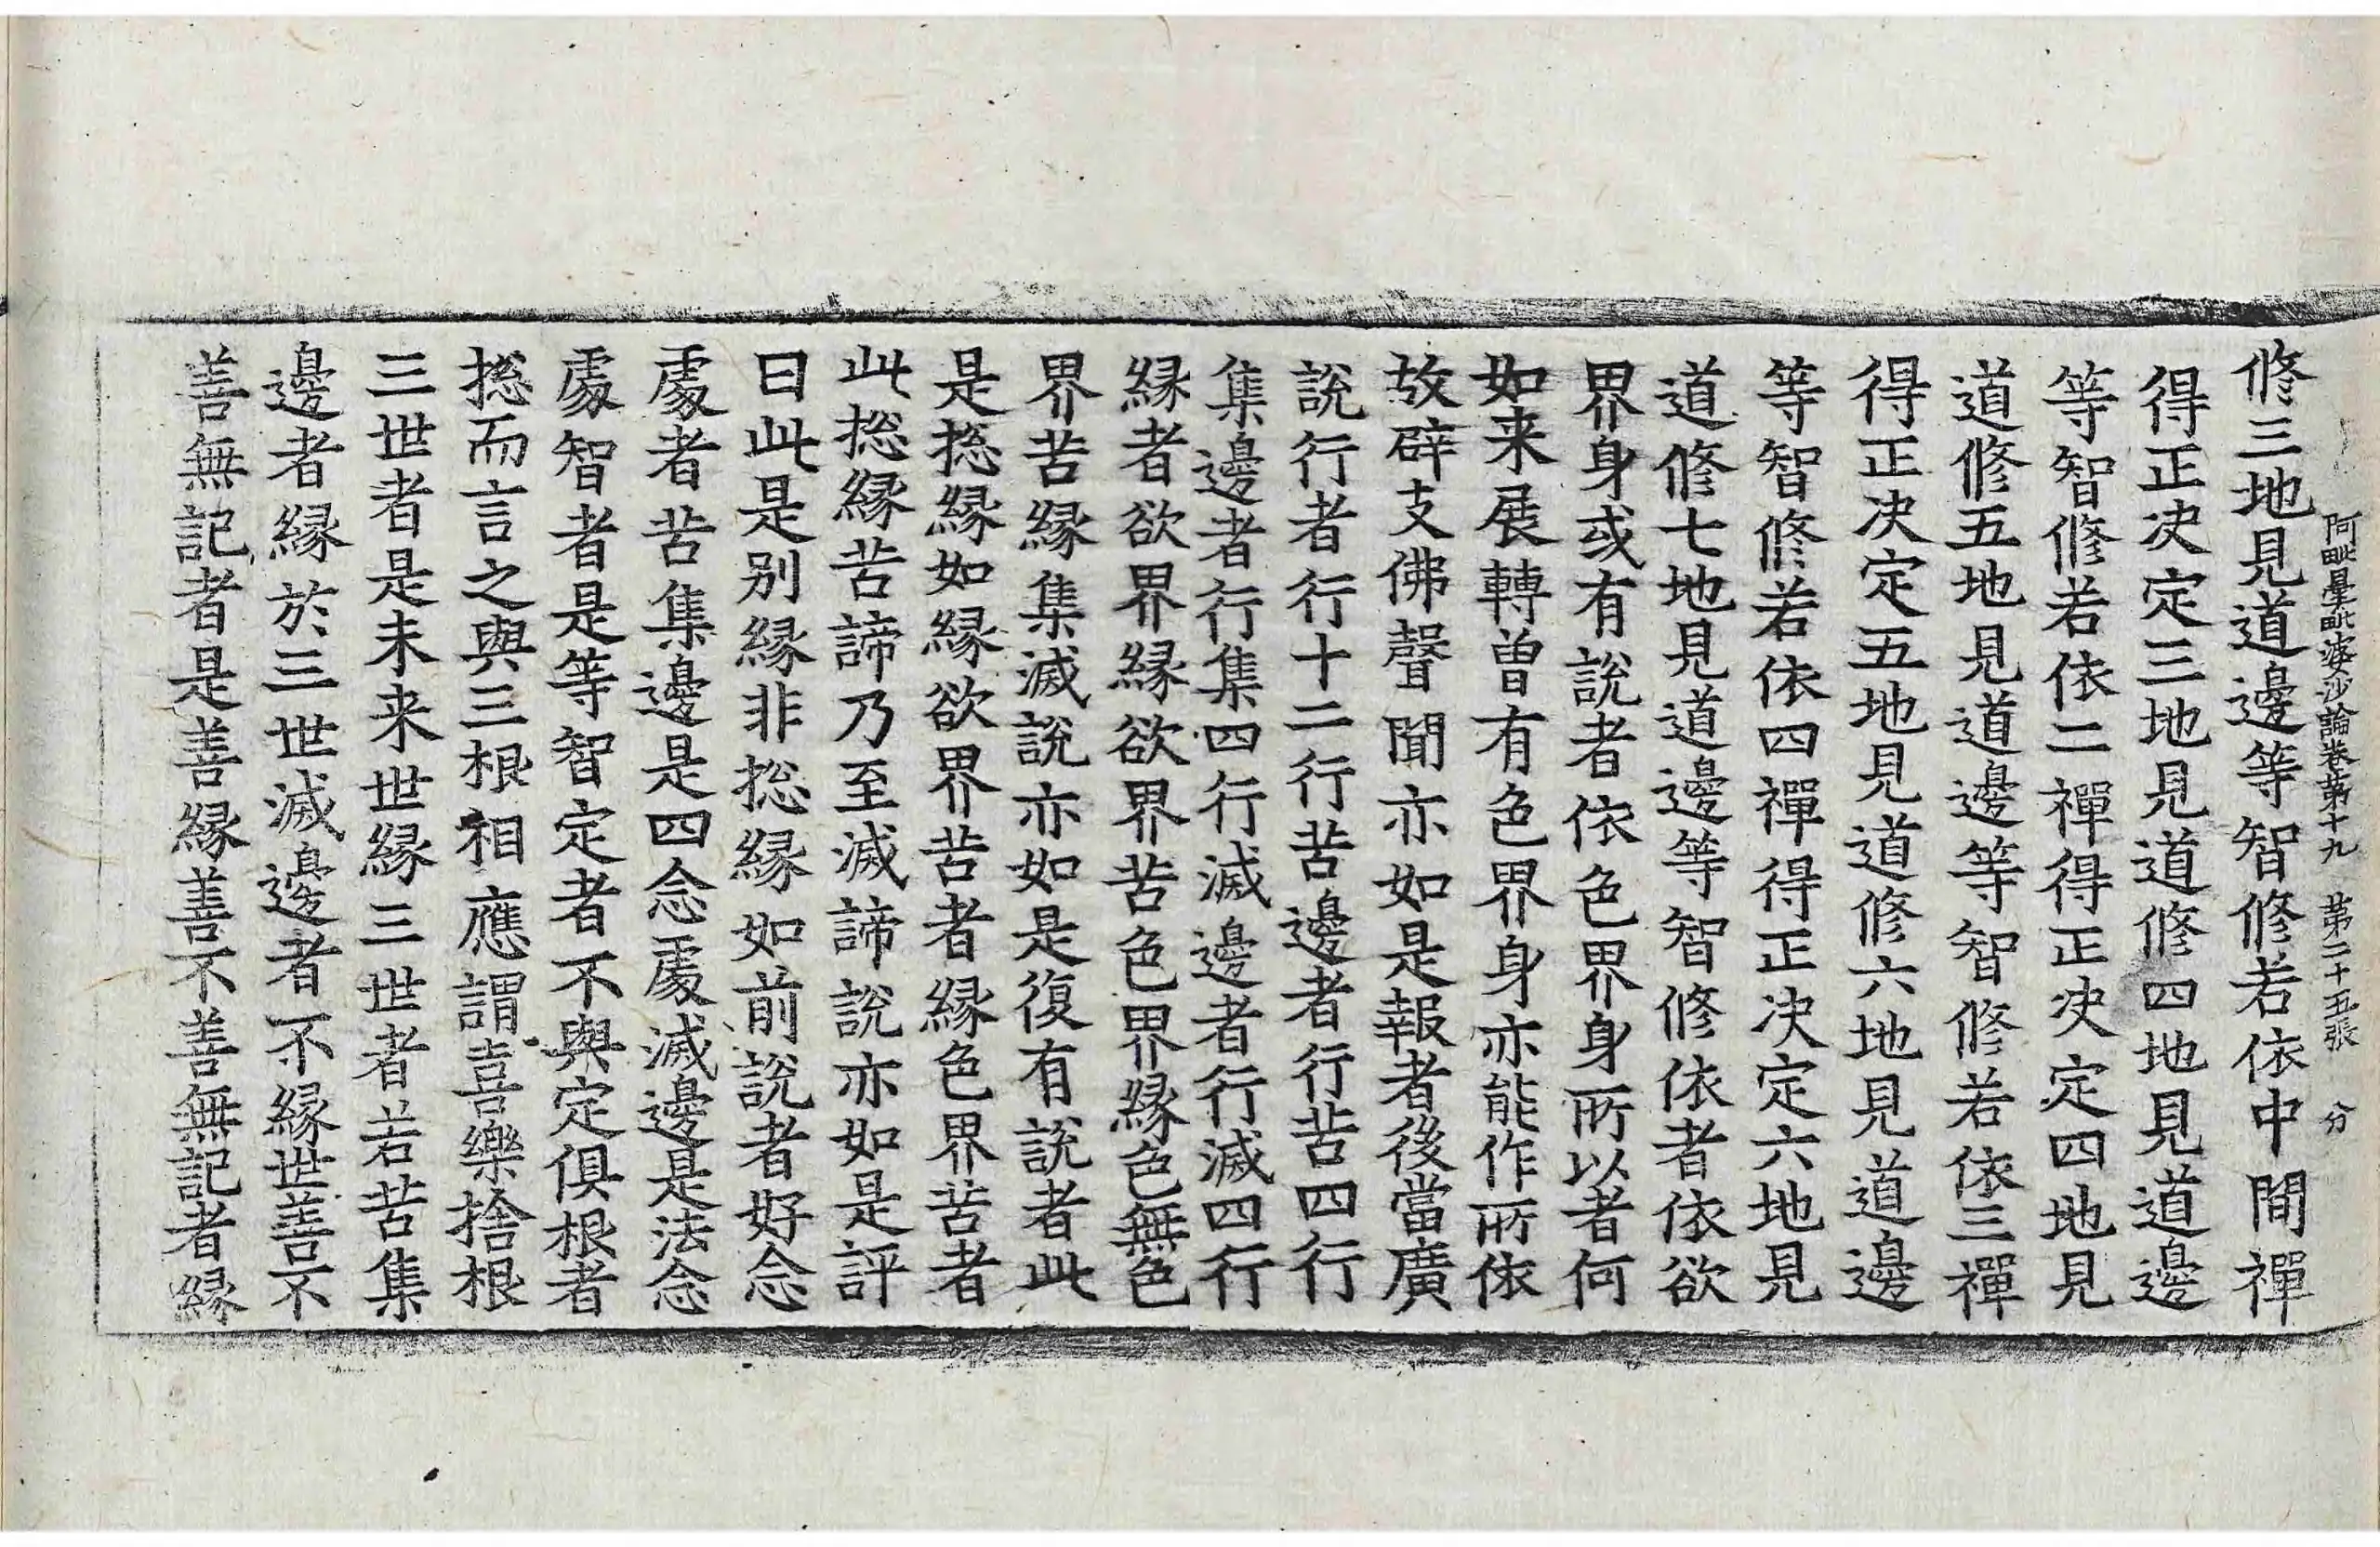 阿毗曇毗婆沙論卷第十九 第二十五張 分
修三地見道邊等智修若依中間禪
得正决定三地見道修四地見道邊
等智修若依二禪得正决定四地見
道修五地見道邊等智修若依三禪
得正决定五地見道修六地見道邊
等智修若依四禪得正决定六地見
道修七地見道邊等智修依者依欲
界身或有說者依色界身所以者何
如来展轉曾有色界身亦能作所依
故辟支佛聲聞亦如是報者後當廣
說行者行十二行苦邊者行苦四行
集邊者行集四行滅邊者行滅四行
緣者欲界緣欲界苦色界緣色無色
界苦緣集滅說亦如是復有說者此
是捴緣如緣欲界苦者緣色界苦者
此捴緣苦諦乃至滅諦說亦如是評
曰此是别緣非捴緣如前說者好念
處者苦集邊是四念處滅邊是法念
處智者是等智定者不與定俱根者
捴而言之與三根相應謂喜樂捨根
三世者是未来世緣三世者若苦集
邊者緣於三世滅邊者不緣世善不
善無記者是善緣善不善無記者緣